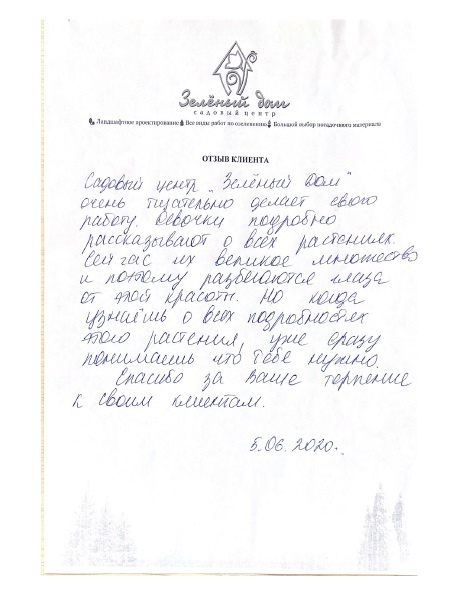 Зелёный дом
садовый центр
Ландшафтное проектирование Все виды работ по озеленению Большой выбор посадочного материала
ОТЗЫВ КЛИЕНТА
Садовый центр „Зелёный Дом"
очень тщательно делает свою
работу. Девочки подробно
рассказывают о всех растениях.
Сейчас их великое множество
и потому разбегаются глаза
от этой красоты. Но когда
узнаёшь о всех подробностях
этого растения, уже сразу
понимаешь что тебе нужно.
Спасибо за Ваше терпение
к своим клиентам.
5.06.2020г.